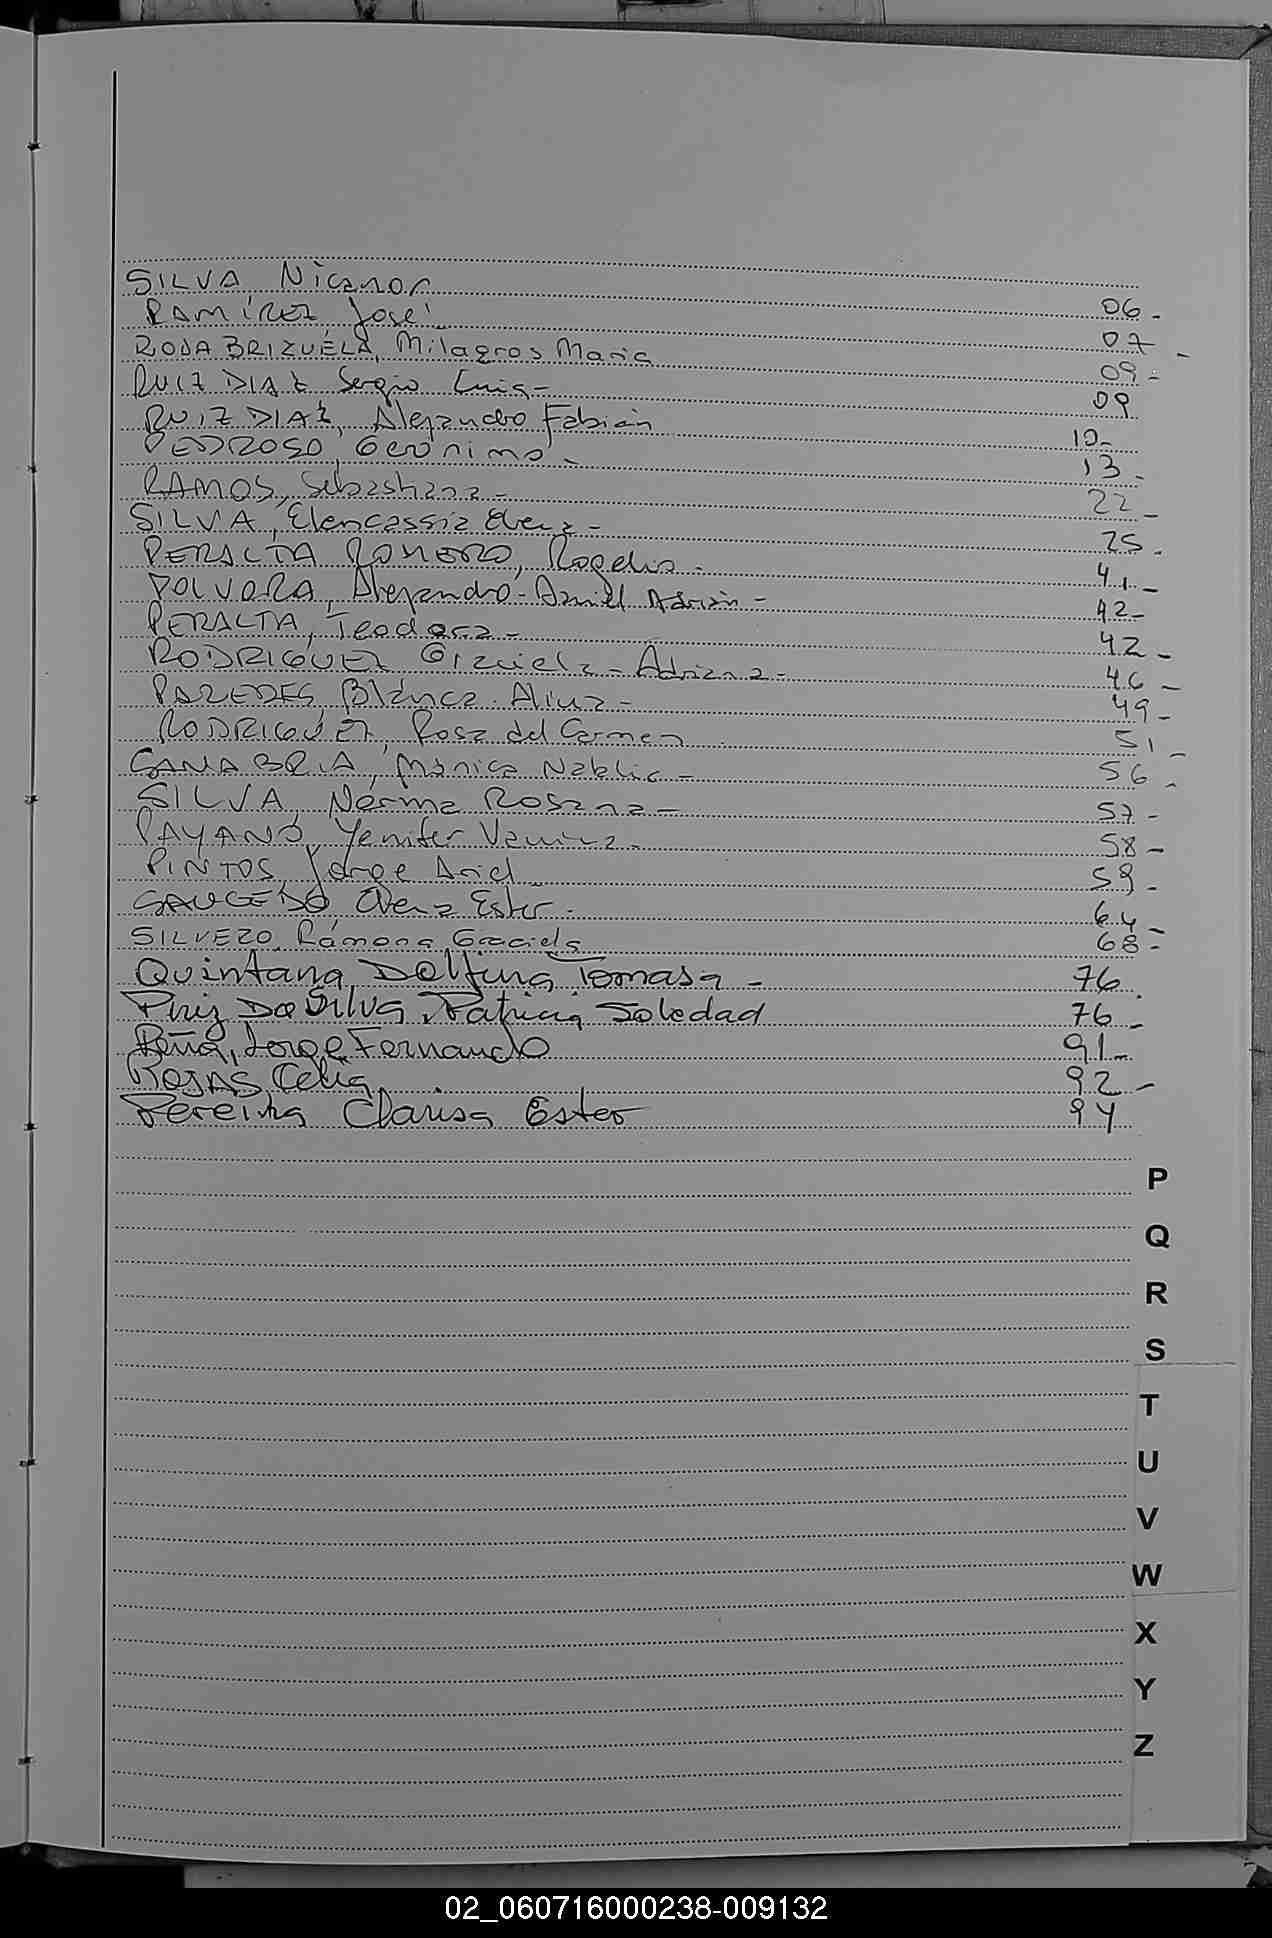 SILVA Nicanor 06-
RAMÍREZ José 07-
ROJA BRIZUELA, Milagros Maria 09-
RUIZ DIAZ Sergio Luis- 09
RUIZ DIAZ, Alejandro Fabián 10-
PEDROSO, Gerónimo- 13-
RAMOS, Sebastiana- 22-
SILVA, 25-
PERALTA ROMERO, Rogelio- 41-
POLVORA, Alejandro-Daniel Adrián- 42-
PERALTA, Teodora- 42-
RODRIGUEZ Graciela-Adriana- 46-
PAREDES Blanca- 49-
RODRIGUEZ, Rosa del Carmen 51-
SANABRIA, Mónica 56-
SILVA, Norma Rosana- 57-
PAYANO, Yenifer 58-
PINTOS, Jorge Ariel- 59-
SAUCEDO Ester- 64-
SILVERO, Ramona Graciela 68-
Quintana, Delfina Tomasa- 76.
Da Silva, Patricia Soledad 76-
Peña, Jorge Fernando 91-
ROJAS Celia 92-
Pereira Clarisa Ester 94
P
Q
R
S
T
U
V
W
X
Y
Z
02_060716000238-009132